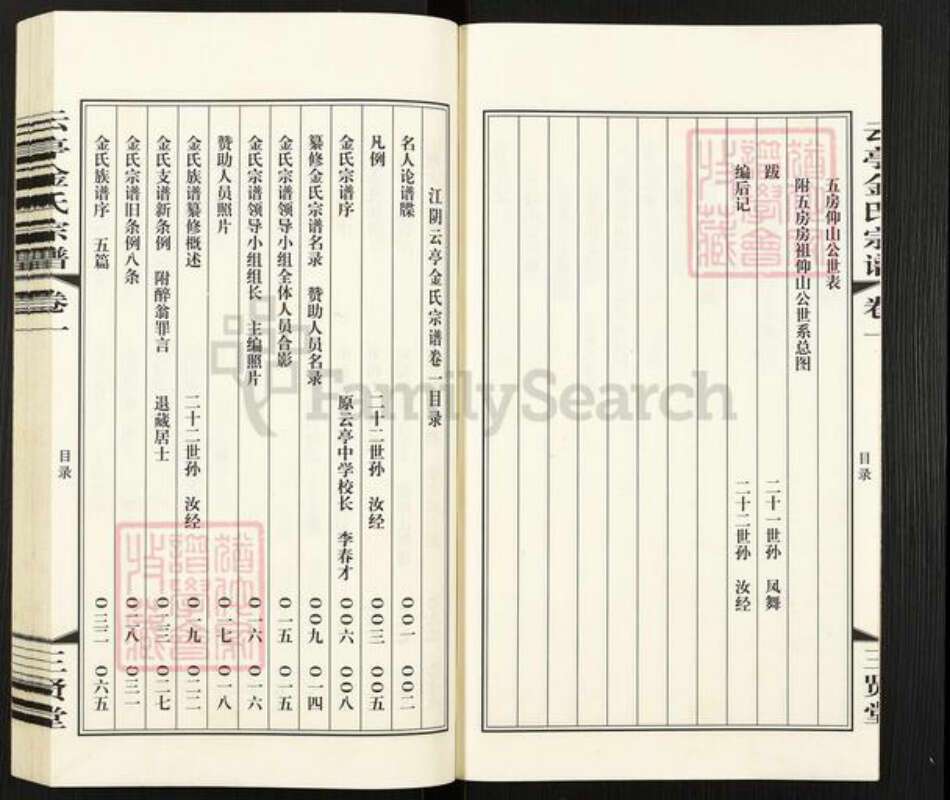 云亭金氏宗谱 卷一
目录
三贤堂
五房仰山公世表
附五房房祖仰山公世系总图
跋 二十一世孙 凤舞
编后记 二十二世孙 汝经
江阴云亭金氏宗谱卷一目录
名人论谱牒 〇〇一 〇〇二
凡例 二十二世孙 汝经 〇〇三 〇〇五
金氏宗谱序 原云亭中学校长 李春才 〇〇六 〇〇八
纂修金氏宗谱名录 赞助人员名录 〇〇九 〇一四
金氏宗谱领导小组全体人员合影 〇一五 〇一五
金氏宗谱领导小组组长 主编照片 〇一六 〇一六
赞助人员照片 〇一七 〇一八
金氏族谱纂修概述 二十二世孙 汝经 〇一九 〇二二
金氏支谱新条例 附醉翁罪言 退藏居士 〇二三 〇二七
金氏宗谱旧条例八条 〇二八 〇三一
金氏族谱序 五篇 〇三二 〇六五
云亭金氏宗谱 卷一
目录
三贤堂
FamilySearch